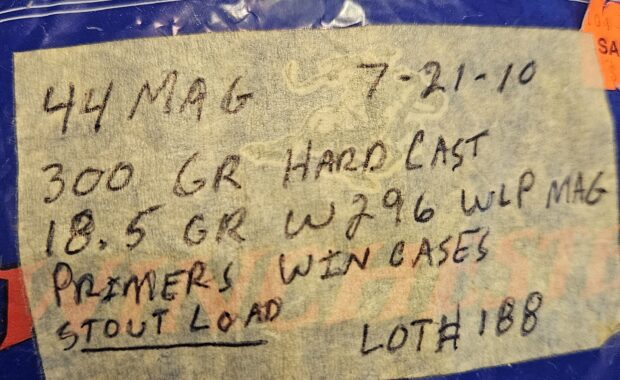 44 MAG 7-21-10
300 GR HARD CAST
18.5 GR W296 WLP MAG
PRIMERS WIN CASES
STOUT LOAD
LOT# 188
SA